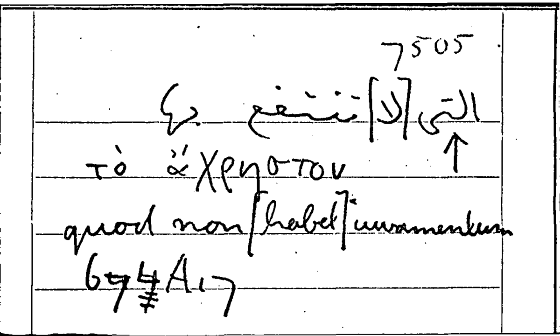 7505
التى [لا] تنتفع بها
τὸ ἄχρηστον
quod non [habet] iuvamentum